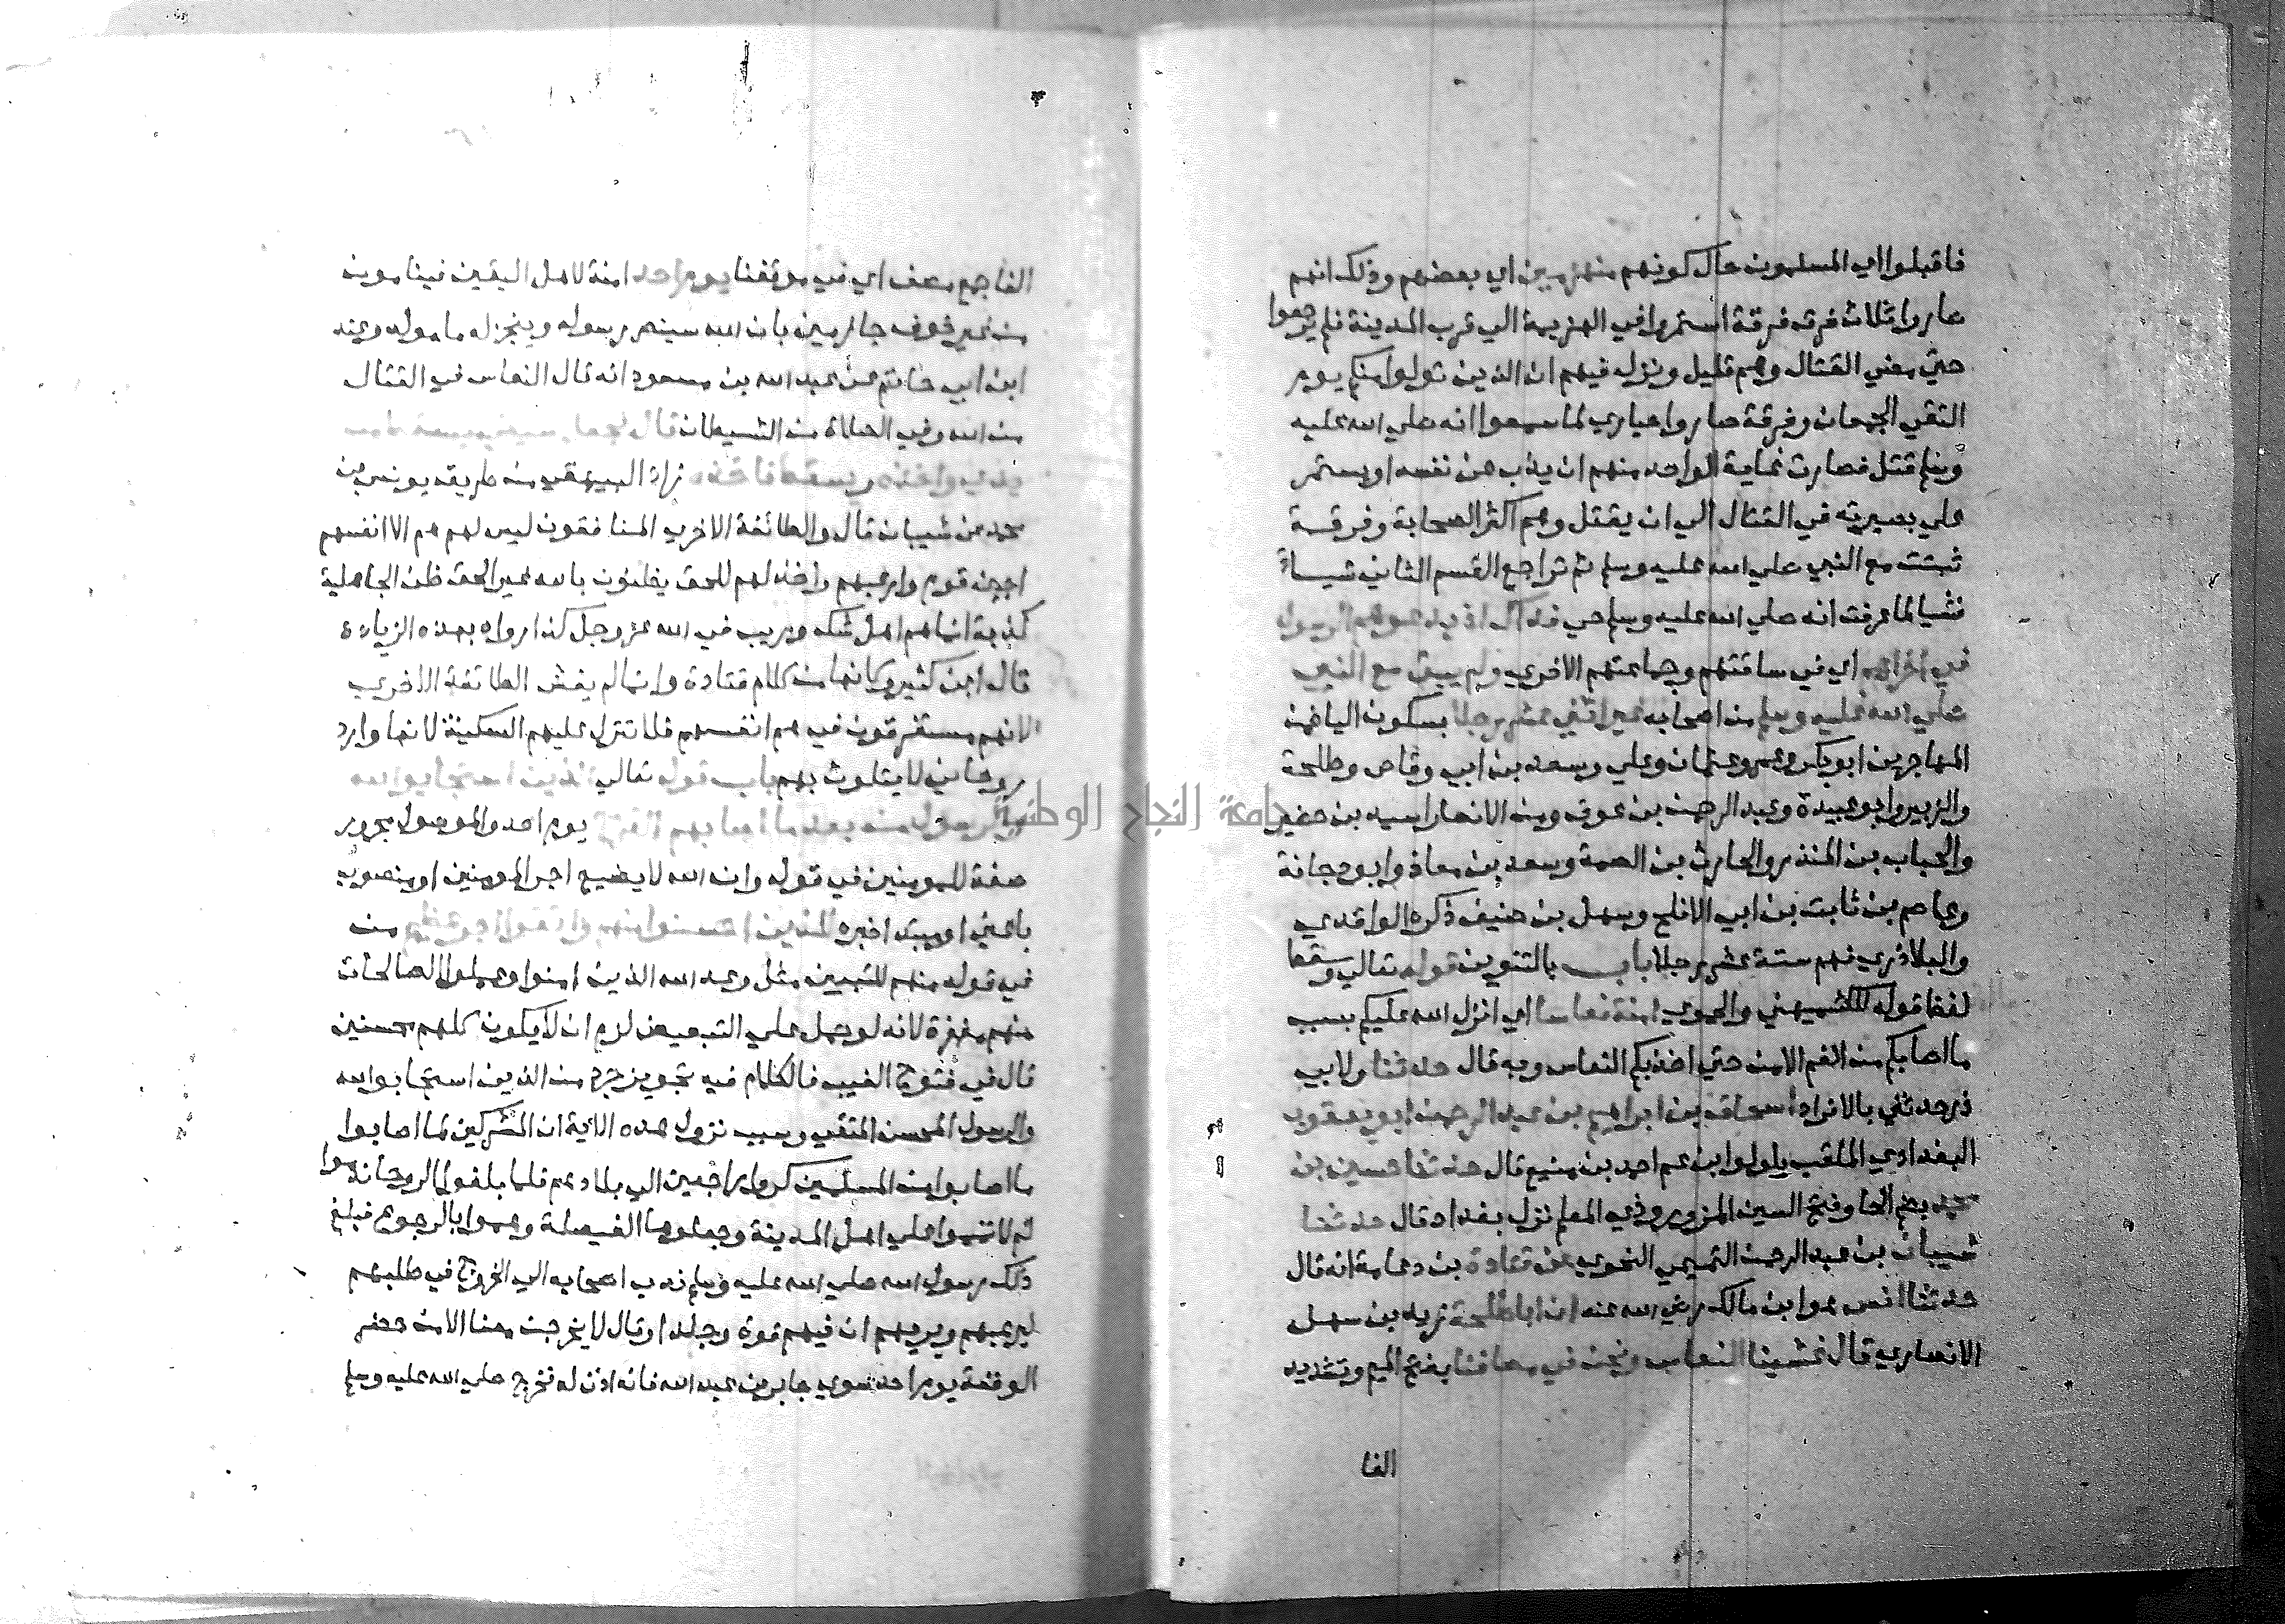 فاقبلوا اي المسلمون حال كونهم منهزمين اي بعضهم وذلك انهم
صاروا ثلاث فرق فرقة استمروا في الهزيمة الي قرب المدينة فلم يرجعوا
حتي مضي القتال وهم قليل ونزل فيهم ان الذين تولوا منكم يوم
التقي الجمعان وفرقة صاروا حياري لما سمعوا انه صلي الله عليه
وسلم قتل فصارت غاية الواحد منهم ان يذب عن نفسه او يستمر
علي بصيرته في القتال الي ان يقتل وهم اكثر الصحابة وفرقة
ثبتت مع النبي صلي الله عليه وسلم ثم تراجع القسم الثاني شياً
فشيا لما عرفت انه صلي الله عليه وسلم حي فذاك اذ يدعوهم الرسول
في اخراهم اي في ساقتهم وجماعتهم الاخري ولم يبق مع النبي
صلي الله عليه وسلم من اصحابه غير اثني عشر رجلا بسكون اليا فمن
المهاجرين ابو بكر وعمر وعثمان وعلي وسعد بن ابي وقاص وطلحة
والزبير وابو عبيدة وعبد الرحمن بن عوف ومن الانصار اسيد بن حضير
والحباب بن المنذر والحارث بن الصمة وسعد بن معاذ وابو دجانة
وعاصم بن ثابت بن ابي الافلح وسهل بن حنيف ذكره الواقدي
والبلاذري فهم ستة عشر رجلا باب بالتنوين قوله تعالي وسقط
لفظ قوله للكشميهني والحموي امنة نعاسا اي انزل الله عليكم بسبب
ما اصابكم من الغم الامن حتي اخذكم النعاس وبه قال حدثنا ولابي
ذر حدثني بالافراد اسحاق بن ابراهيم بن عبد الرحمن ابو يعقوب
البغدادي الملقب بلولو ابن عم احمد بن منيع قال حدثنا حسين بن
محمد بضم الحا وفتح السين المروروذي المعلم نزل بغداد قال حدثنا
شيبان بن عبد الرحمن التميمي النحوي عن قتادة بن دعامة انه قال
حدثنا انس هو ابن مالك رضي الله عنه ان ابا طلحة زيد بن سهل
الانصاري قال غشينا النعاس ونحن في مصافنا بفتح الميم وتشديد
الفا
الفا جمع مصف اي في موقفنا يوم احد امنة لاهل اليقين فينامون
من غير خوف جازمين بان الله سينصر رسوله وينجز له ماموله وعند
ابن ابي حاتم عن عبد الله بن مسعود انه قال النعاس في القتال
من الله وفي الصلاة من الشيطان قال فجعل سيفي يسقط من
يدي واخذه ويسقط فاخذه زاد البيهقي من طريق يونس بن
محمد عن شيبان قال والطائفة الاخري المنافقون ليس لهم هم الا انفسهم
اجبن قوم وارعبهم واخذلهم للحق يظنون بالله غير الحق ظن الجاهلية
كذبة انما هم اهل شك وريب في الله عز وجل كذا رواه بهذه الزيادة
قال ابن كثير وكانها من كلام قتادة وانما لم يغش الطائفة الاخري
لانهم مستغرقون في هم انفسهم فلا تنزل عليهم السكينة لانها وارد
روحاني لا يتلوث بهم باب قوله تعالي الذين استجابوا لله
والرسول من بعد ما اصابهم القرح يوم احد والموصول مجرور
صفة للمومنين في قوله وان الله لا يضيع اجر المومنين او منصوب
باعني او مبتدا خبره للذين احسنوا منهم واتقوا اجر عظيم من
في قوله منهم للتبيين مثل وعد الله الذين امنوا وعملوا الصالحات
منهم مغفرة لانه لو حمل علي التبعيض لزم ان لا يكون كلهم محسنين
قال في فتوح الغيب فالكلام فيه تجويز جرد من الذين استجابوا لله
والرسول المحسن المتقي وسبب نزول هذه الاية ان المشركين لما اصابوا
ما اصابوا من المسلمين كروا راجعين الي بلادهم فلما بلغوا الروحا ندموا
لم لا تمموا علي اهل المدينة وجعلوها الفيصلة وهموا بالرجوع فبلغ
ذلك رسول الله صلي الله عليه وسلم فندب اصحابه الي الخروج في طلبهم
ليرعبهم ويريهم ان فيهم قوة وجلدا وقال لا يخرجن معنا الا من حضر
الوقعة يوم احد سوي جابر بن عبد الله فانه اذن له فخرج صلي الله عليه وسلم
جامعة النجاح الوطنية